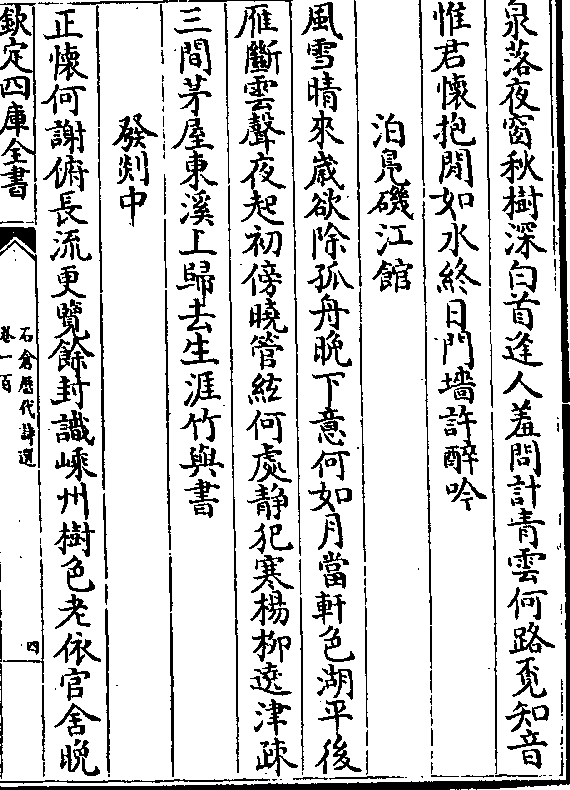 泉落夜窗秋樹深白首逢人羞問計青雲何路覔知音
惟君懷抱閒如水終日門墻許醉吟
泊鳬磯江館
風雪晴來嵗欲除孤舟晚下意何如月當軒色湖平後
雁斷雲聲夜起初傍曉管絃何處静犯寒楊柳遶津疎
三間茅屋東溪上歸去生涯竹與書
發剡中
正懷何謝俯長流更覽餘封識嵊州樹色老依官舍晚
欽定四庫全書
石倉歴代詩選
卷一百
四